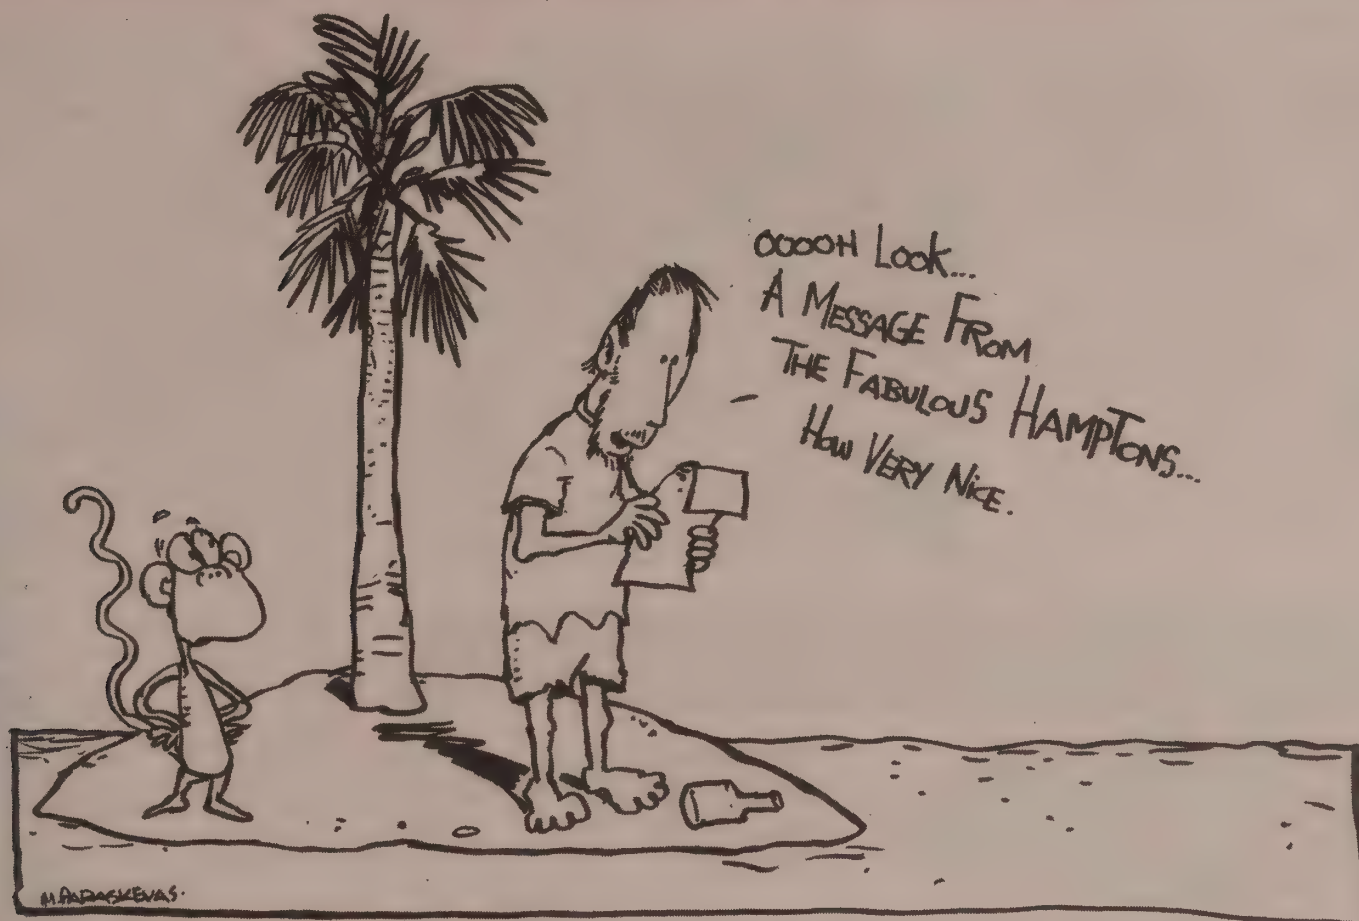 OOOOH LOOK...
A MESSAGE FROM
THE FABULOUS HAMPTONS...
HOW VERY NICE.
M. PARASKEVAS.